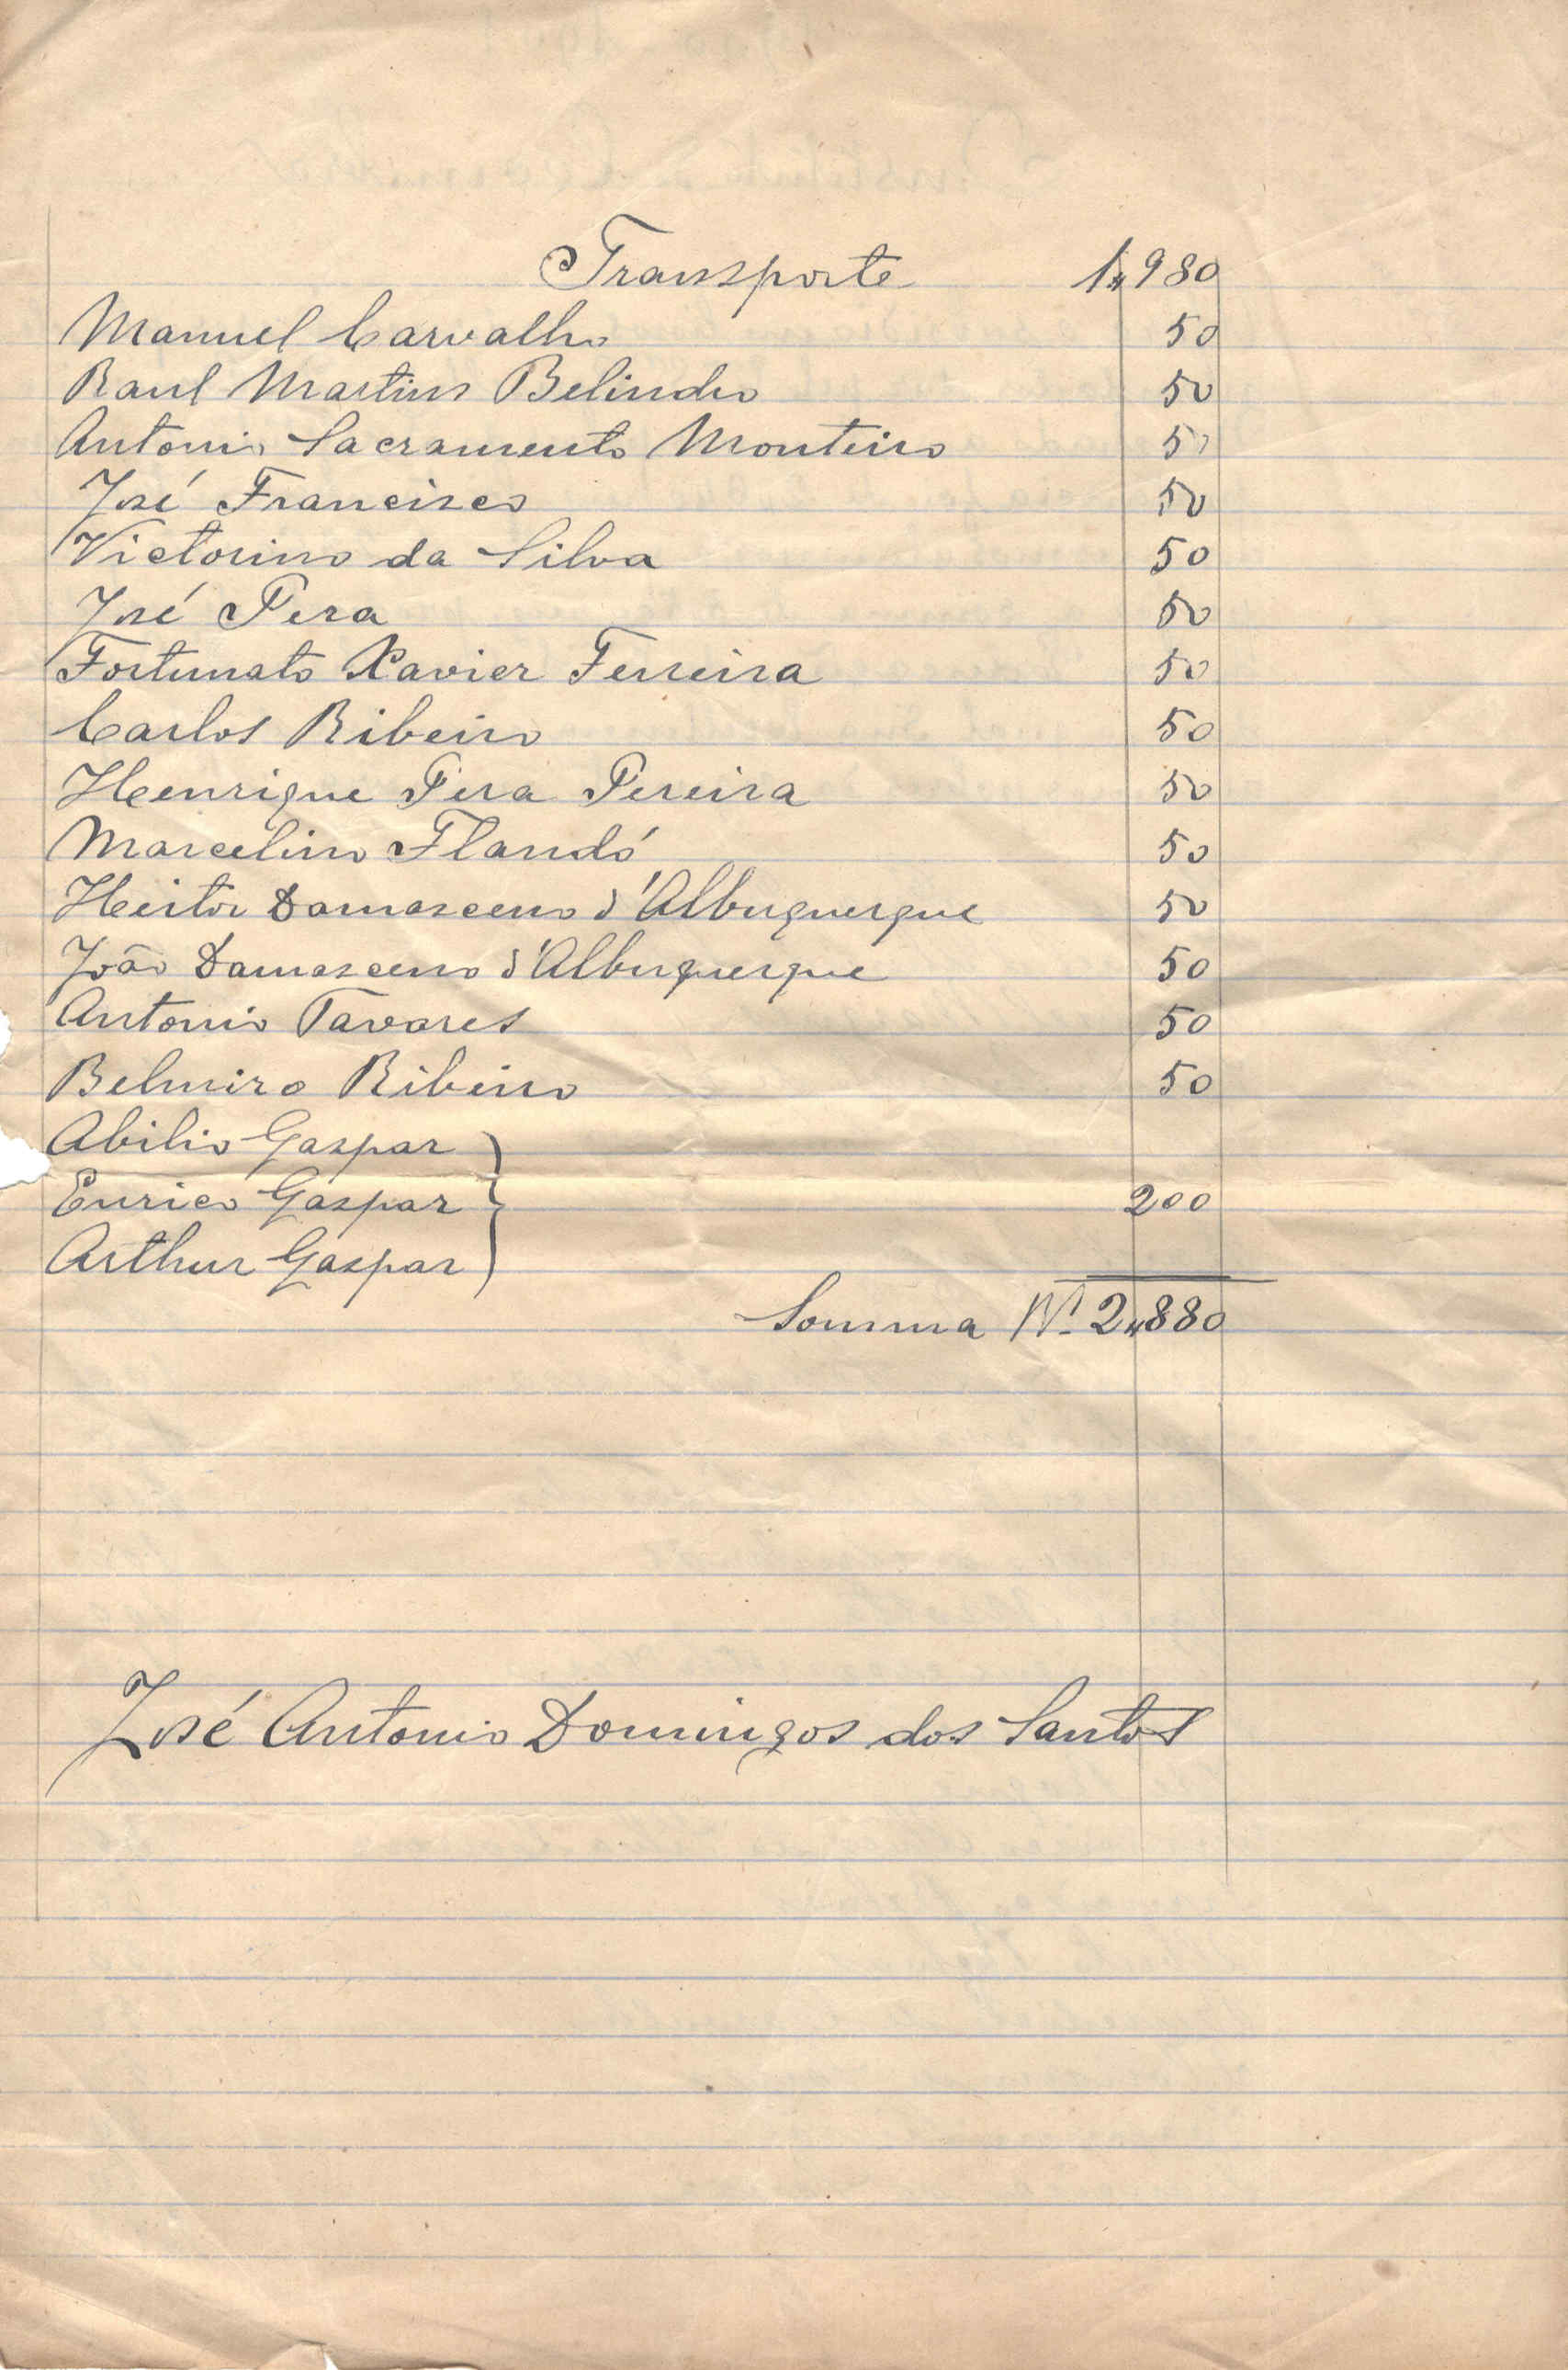 Transporte 1"980
Manuel Carvalho 50
Raul Martins Belindro 50
Antonio Sacramento Monteiro 50
José Francisco 50
Victorino da Silva 50
José Pera 50
Fortunato Xavier Ferreira 50
Carlos Ribeiro 50
Henrique Pera Pereira 50
Marcelino Flandó 50
Heitor Damasceno d'Albuquerque 50
João Damasceno d'Albuquerque 50
Antonio Tavares 50
Belmiro Ribeiro 50
Abilio Gaspar
Enrico Gaspar 200
Arthur Gaspar
Somma 2"880
José Antonio Domingos dos Santos